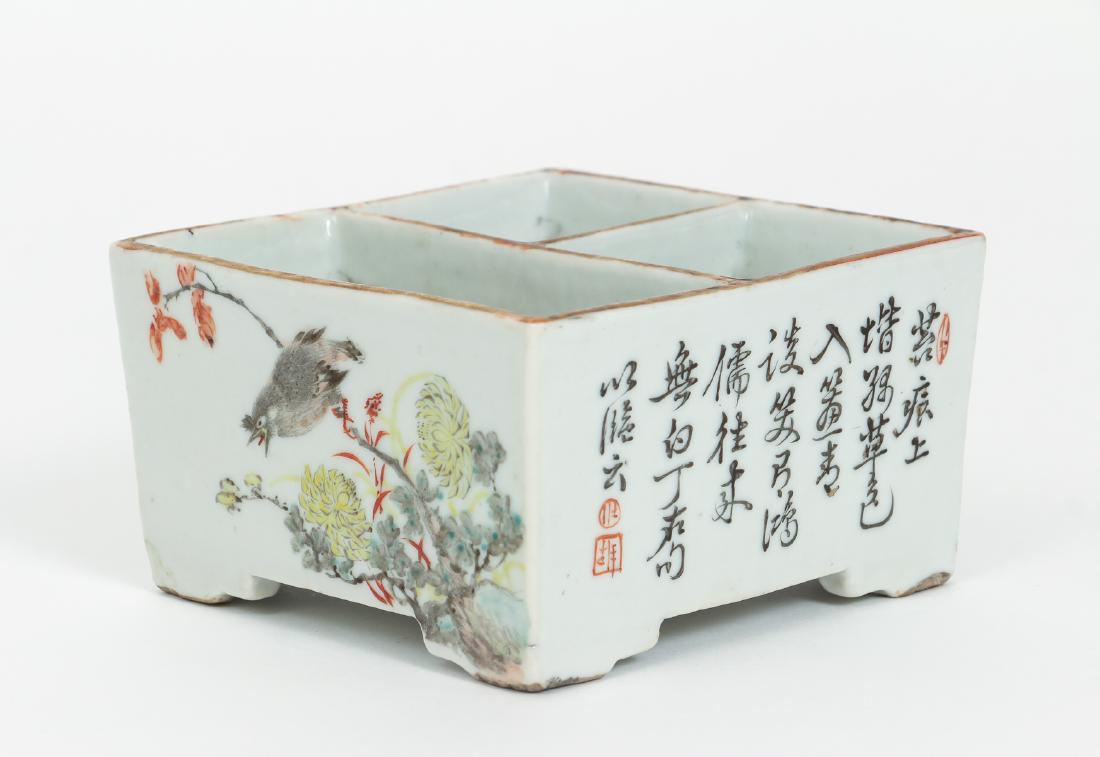 苔痕上
堦綠草色
入簾青
談笑有鴻
儒往來
無白丁右句
以臨云